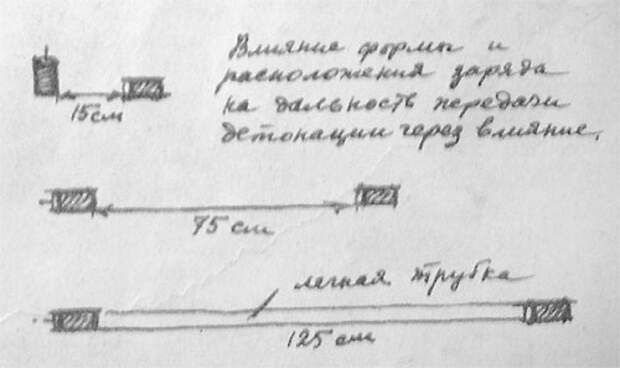 Влияние формы и
расположения заряда
на дальность передачи
детонации через влияние.
15 см
75 см
легкая трубка
125 см